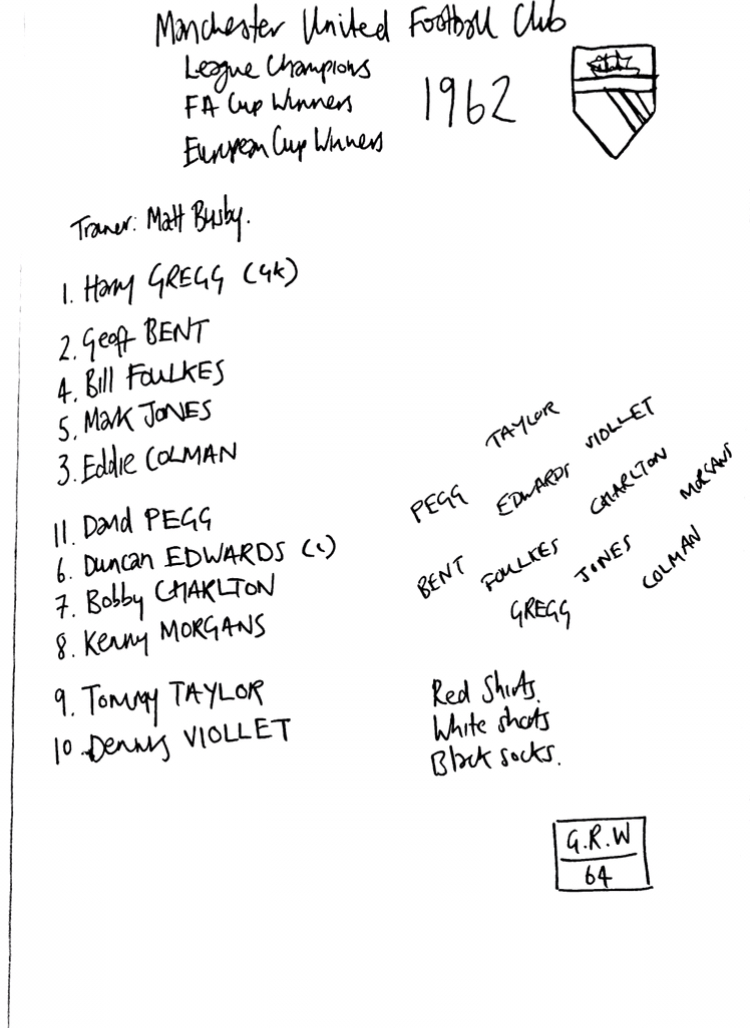 Manchester United Football Club
League Champions
FA Cup Winners
European Cup Winners
1962
Trainer: Matt Busby.
1. Harry GREGG (GK)
2. Geoff BENT
4. Bill FOULKES
5. Mark JONES
3. Eddie COLMAN
11. David PEGG
6. Duncan EDWARDS (c)
7. Bobby CHARLTON
8. Kenny MORGANS
9. Tommy TAYLOR
10 Dennis VIOLLET
TAYLOR VIOLLET
PEGG EDWARDS CHARLTON MORGANS
BENT FOULKES JONES COLMAN
GREGG
Red Shirts.
White shorts
Black socks.
G.R.W
64